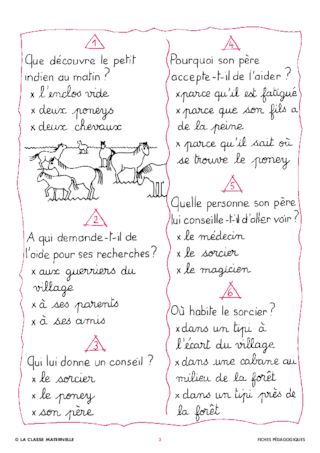 1
Que découvre le petit
indien au matin ?
x l'enclos vide
x deux poneys
x deux chevaux
2
A qui demande-t-il de
l'aide pour ses recherches?
x aux guerriers du
village
x à ses parents
x à ses amis
3
Qui lui donne un conseil ?
x le sorcier
x le poney
x son père
4
Pourquoi son père
accepte-t-il de l'aider ?
x parce qu'il est fatigué
x parce que son fils a
de la peine
x parce qu'il sait où
se trouve le poney
5
Quelle personne son père
lui conseille-t-il d'aller voir ?
x le médecin
x le sorcier
x le magicien
6
Où habite le sorcier?
x dans un tipi à
l'écart du village
x dans une cabane au
milieu de la forêt
x dans un tipi près de
la forêt
© LA CLASSE MATERNVILLE
3
FICHES PÉDAGOGIQUES